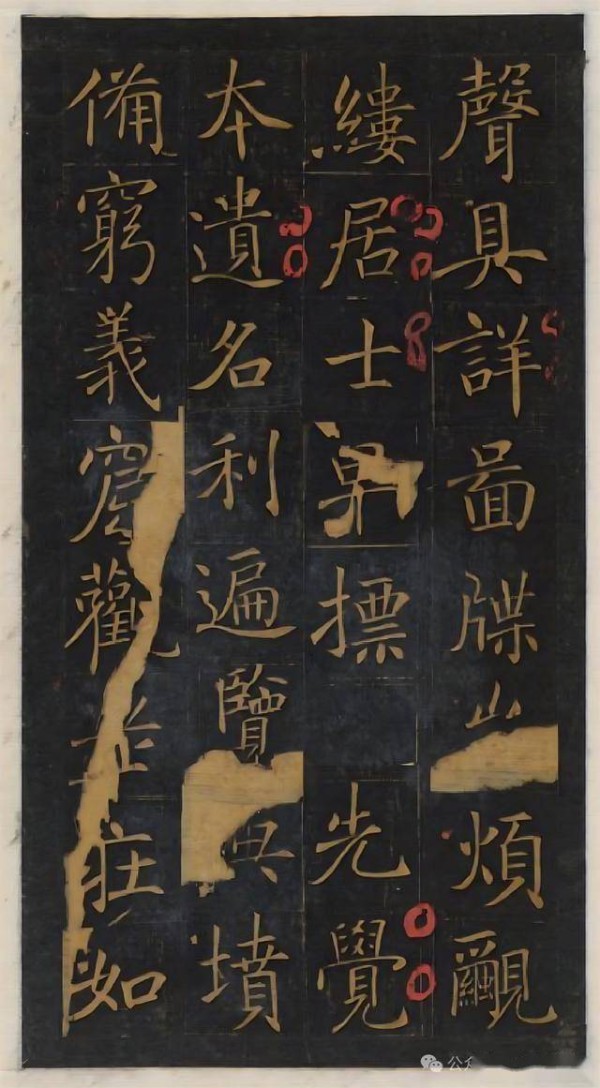 聲具詳啚牒煩覶
縷居士標先覺
夲遺名利遍覽墳
備窮義觀莊如
公众